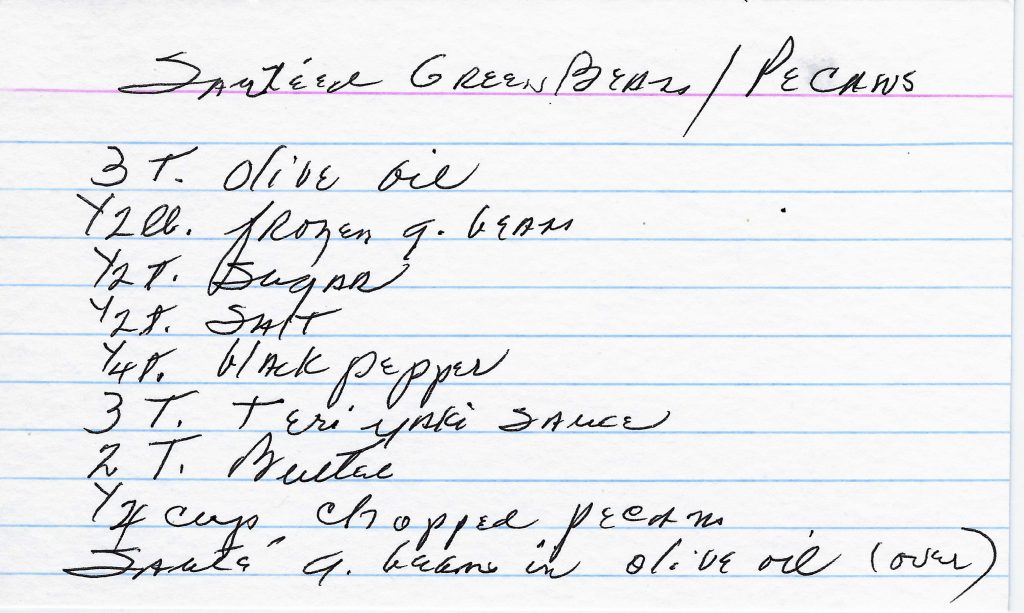 Sautéed Green Beans / Pecans
3 T. olive oil
1/2 lb. frozen g. beans
1/2 t. Sugar
1/2 t. Salt
1/4 t. black pepper
3 T. Teriyaki sauce
2 T. Butter
1/4 cup chopped pecans
Sauté g. beans in olive oil (over)